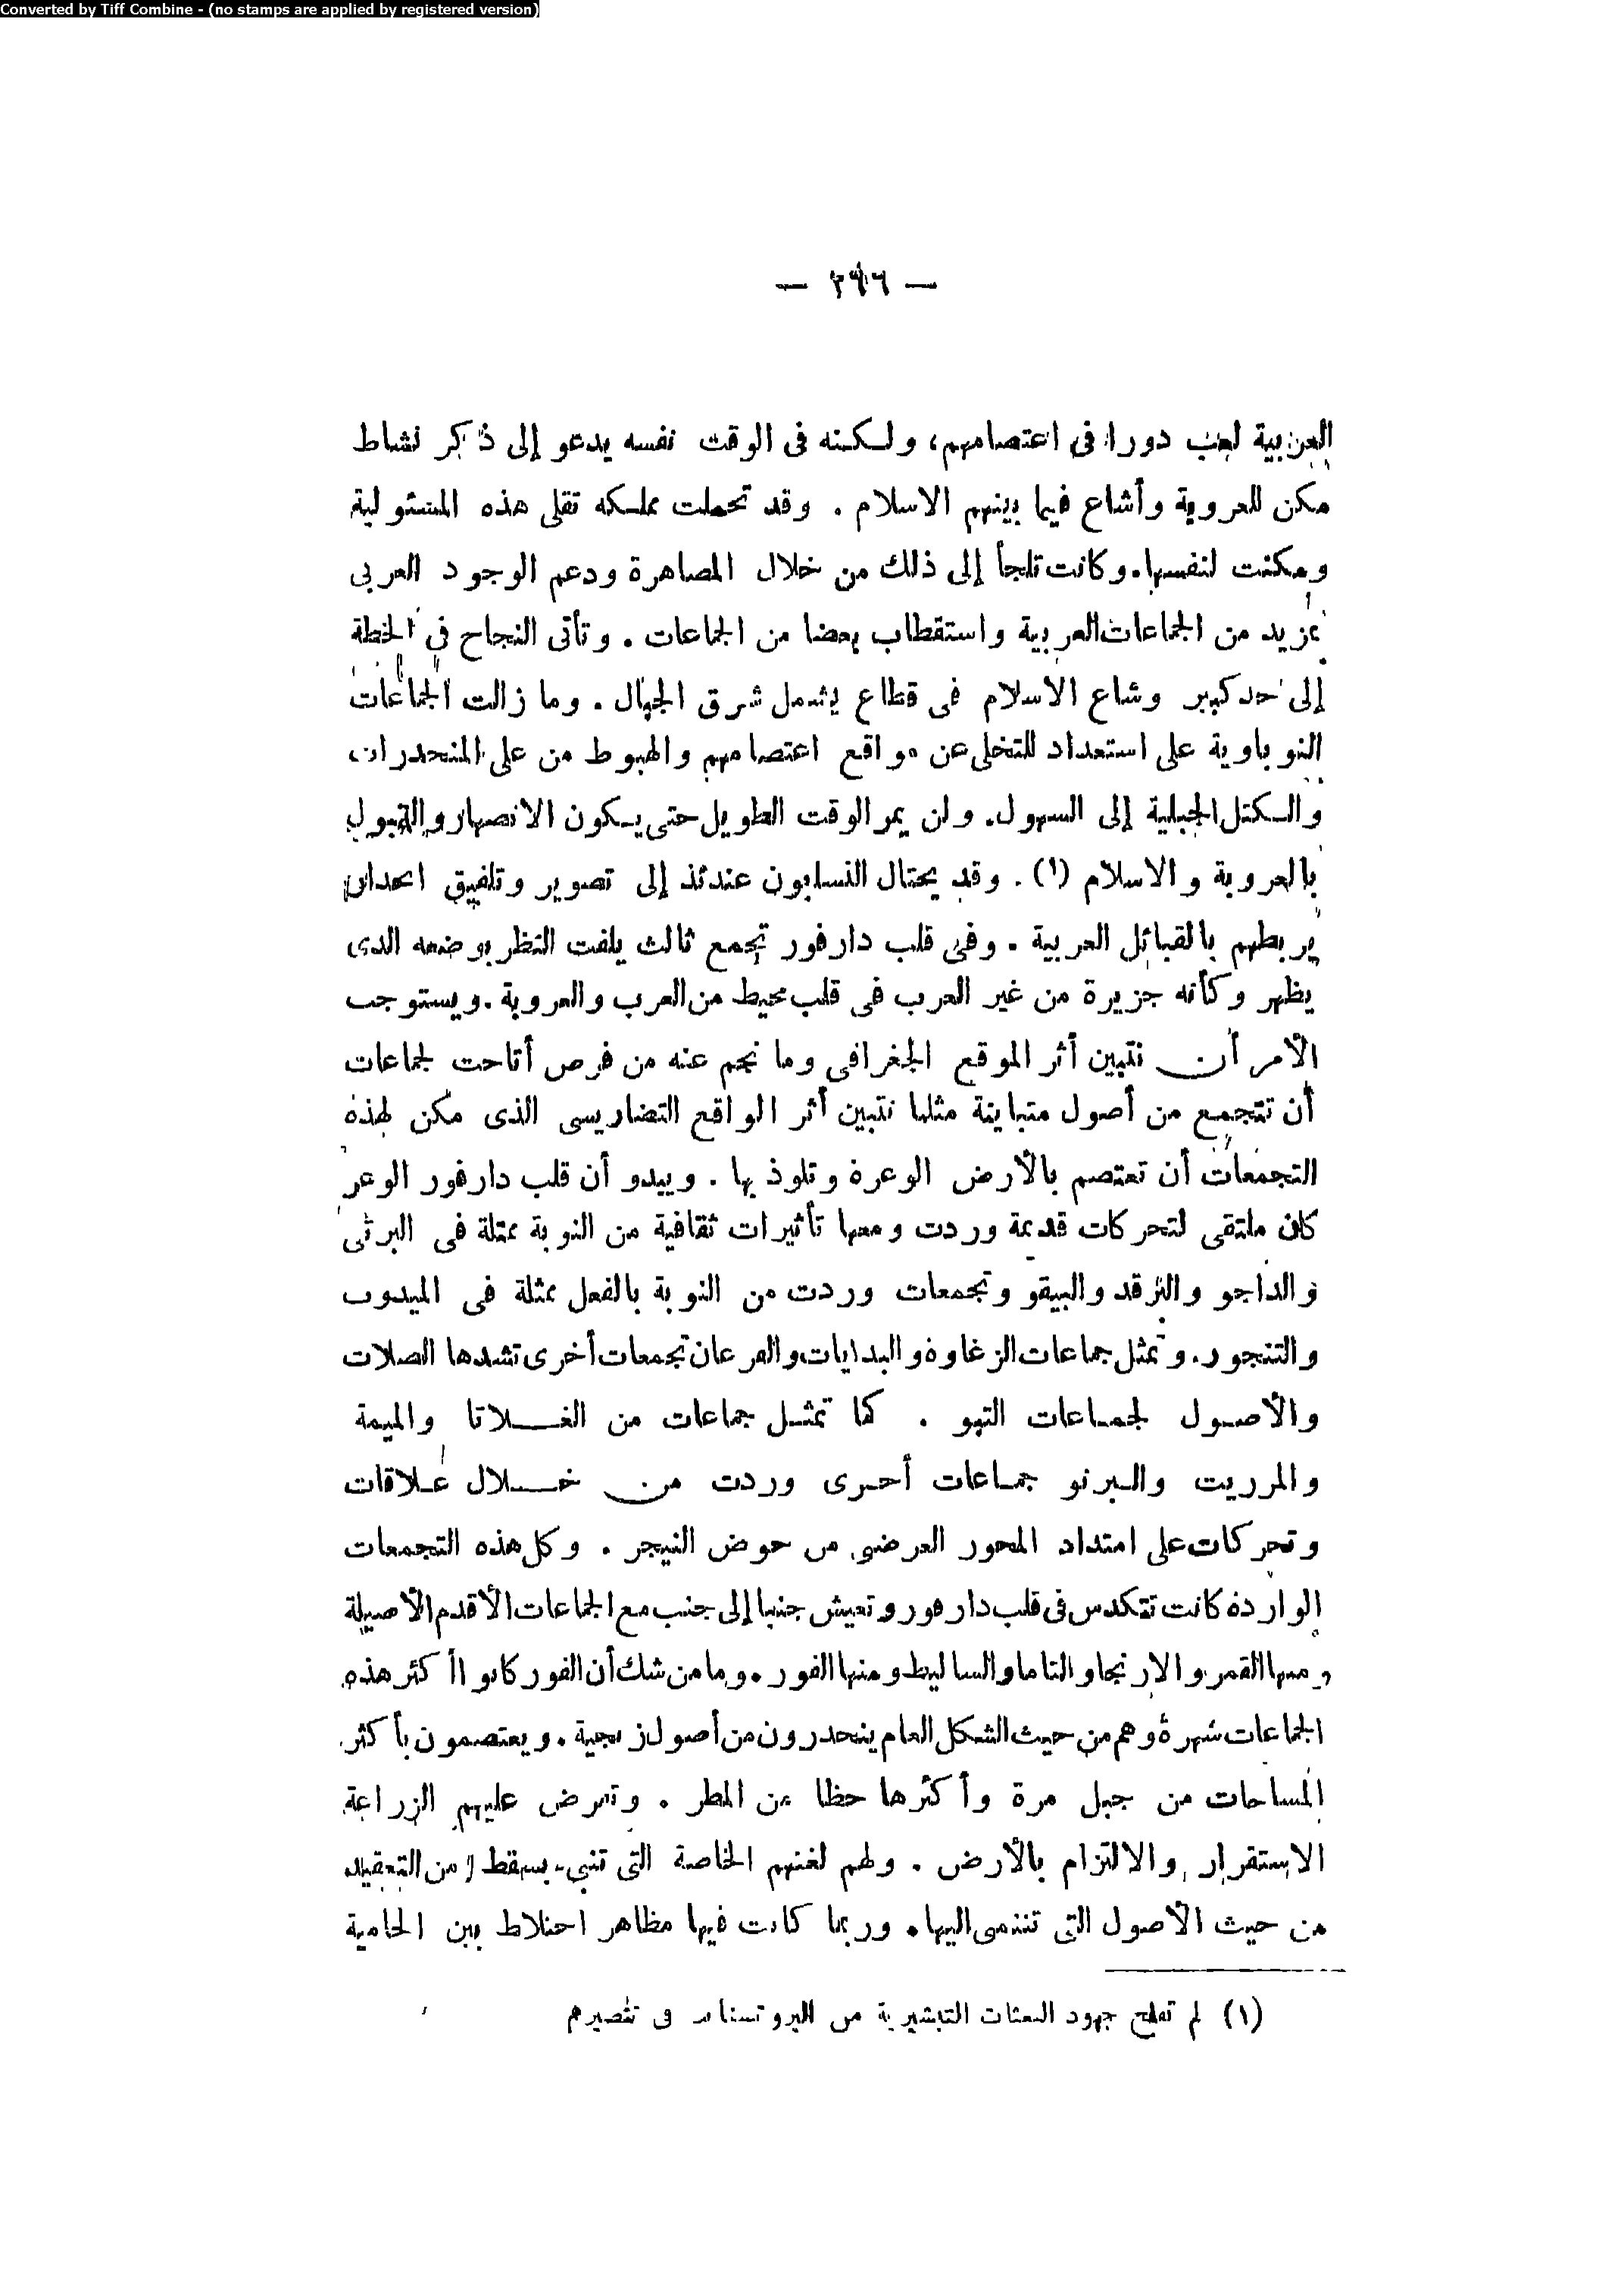 Converted by Tiff Combine - (no stamps are applied by registered version)
— ٢٩٦ —
العربية لعب دورا فى اعتصامهم، ولكنه فى الوقت نفسه يدعو إلى ذكر نشاط
مكن للعروبة وأشاع فيما بينهم الاسلام . وقد تحملت مملكه تقلى هذه المسئولية
ومكنت لنفسها. وكانت تلجأ إلى ذلك من خلال المصاهرة ودعم الوجود العربى
بمزيد من الجماعات العربية واستقطاب بعضا من الجماعات . وتأتى النجاح فى الخطة
إلى حد كبير وشاع الاسلام فى قطاع يشمل شرق الجبال . وما زالت الجماعات
النوباوية على استعداد للتخلى عن مواقع اعتصامهم والهبوط من على المنحدرات
والكتل الجبلية إلى السهول. ولن يمر الوقت الطويل حتى يكون الانصهار والقبول
بالعروبة والاسلام (١) . وقد يحتال النسابون عندئذ إلى تصوير وتلفيق احداث
يربطهم بالقبائل العربية . وفى قلب دارفور تجمع ثالث يلفت النظر بوضعه الذى
يظهر وكأنه جزيرة من غير العرب فى قلب محيط من العرب والعروبة . ويستوجب
الأمر أن نتبين أثر الموقع الجغرافى وما نجم عنه من فرص أتاحت لجماعات
أن تتجمع من أصول متباينة مثلما نتبين أثر الواقع التضاريسى الذى مكن لهذه
التجمعات أن تعتصم بالأرض الوعرة وتلوذ بها . ويبدو أن قلب دارفور الوعر
كان ملتقى لتحركات قديمة وردت ومعها تأثيرات ثقافية من النوبة ممثلة فى البرتى
والداجو والبرقد والبيقو وتجمعات وردت من النوبة بالفعل ممثلة فى الميدوب
والتنجور. وتمثل جماعات الزغاوة والبدايات والقرعان تجمعات أخرى تشدها الصلات
والأصول لجماعات التبو . كما تمثل جماعات من الفلاتا والميمة
والمرريت والبرنو جماعات أخرى وردت من خلال علاقات
وتحركات على امتداد المحور العرضى من حوض النيجر . وكل هذه التجمعات
الواردة كانت تتكدس فى قلب دارفور وتعيش جنبا إلى جنب مع الجماعات الأقدم الأصيلة
ومنها القمر والارنجا والتاما والساليط ومنها الفور . وما من شك أن الفور كانوا أكثر هذه
الجماعات شهرة وهم من حيث الشكل العام ينحدرون من أصول زنجية . ويعتصمون بأكثر
المساحات من جبل مرة وأكثرها حظا من المطر . وتفرض عليهم الزراعة
الاستقرار والالتزام بالأرض . ولهم لغتهم الخاصة التى تنبىء بسقط من التعقيد
من حيث الأصول التى تنتمى اليها . وربما كانت فيها مظاهر اختلاط بين الحامية
(١) لم تفلح جهود البعثات التبشيرية من البروتستانت فى تنصيرهم